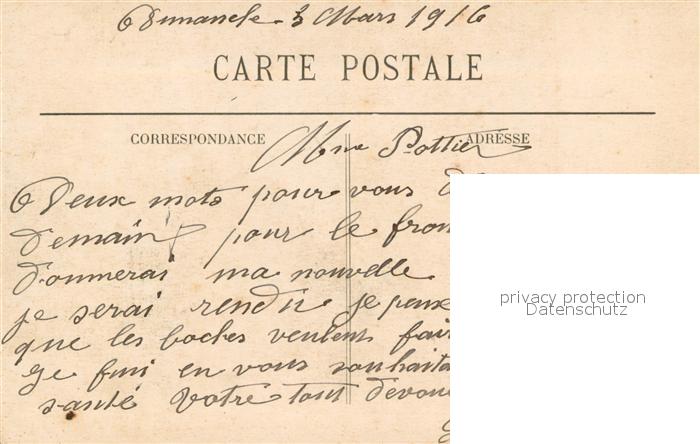 Dimanche 5 Mars 1916
CARTE POSTALE
CORRESPONDANCE
ADRESSE
Mme Pottier
Deux mots pour vous
demain pour le fron
donnerai ma nouvelle
je serai rendu je peux
que les boches veulent fair
Je fini en vous souhaita
santé Votre tout dévou
privacy protection
Datenschutz